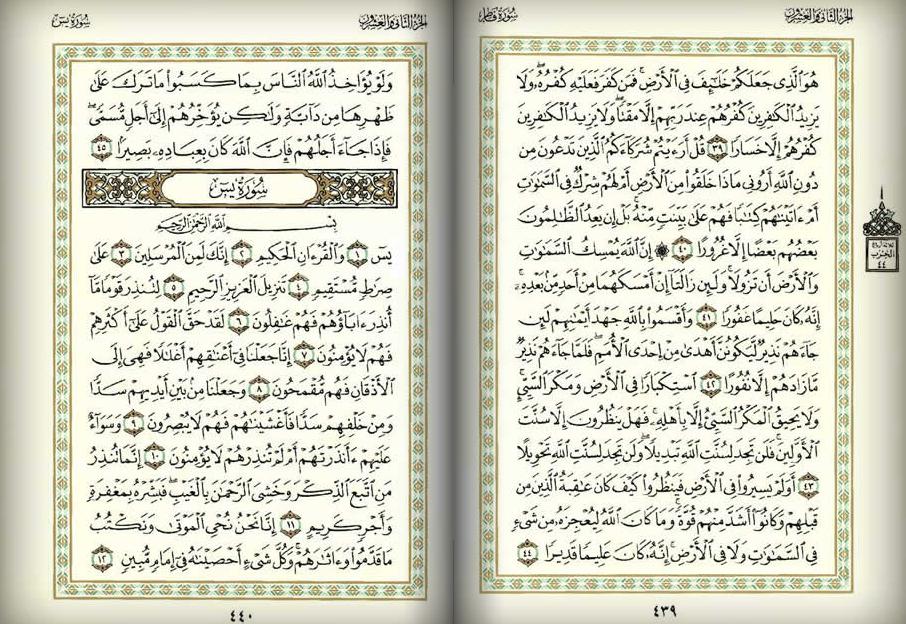 الجزء الثاني والعشرون
سورة فاطر
هُوَ ٱلَّذِي جَعَلَكُمْ خَلَٰٓئِفَ فِي ٱلْأَرْضِ ۚ فَمَن كَفَرَ فَعَلَيْهِ كُفْرُهُۥ ۖ وَلَا
يَزِيدُ ٱلْكَٰفِرِينَ كُفْرُهُمْ عِندَ رَبِّهِمْ إِلَّا مَقْتًا ۖ وَلَا يَزِيدُ ٱلْكَٰفِرِينَ
كُفْرُهُمْ إِلَّا خَسَارًا ٣٩ قُلْ أَرَءَيْتُمْ شُرَكَآءَكُمُ ٱلَّذِينَ تَدْعُونَ مِن
دُونِ ٱللَّهِ أَرُونِي مَاذَا خَلَقُوا۟ مِنَ ٱلْأَرْضِ أَمْ لَهُمْ شِرْكٌ فِي ٱلسَّمَٰوَٰتِ
أَمْ ءَاتَيْنَٰهُمْ كِتَٰبًا فَهُمْ عَلَىٰ بَيِّنَتٍ مِّنْهُ ۚ بَلْ إِن يَعِدُ ٱلظَّٰلِمُونَ
بَعْضُهُم بَعْضًا إِلَّا غُرُورًا ٤٠ ۞ إِنَّ ٱللَّهَ يُمْسِكُ ٱلسَّمَٰوَٰتِ
وَٱلْأَرْضَ أَن تَزُولَا ۚ وَلَئِن زَالَتَآ إِنْ أَمْسَكَهُمَا مِنْ أَحَدٍ مِّنۢ بَعْدِهِۦٓ ۚ
إِنَّهُۥ كَانَ حَلِيمًا غَفُورًا ٤١ وَأَقْسَمُوا۟ بِٱللَّهِ جَهْدَ أَيْمَٰنِهِمْ لَئِن
جَآءَهُمْ نَذِيرٌ لَّيَكُونُنَّ أَهْدَىٰ مِنْ إِحْدَى ٱلْأُمَمِ ۖ فَلَمَّا جَآءَهُمْ نَذِيرٌ
مَّا زَادَهُمْ إِلَّا نُفُورًا ٤٢ ٱسْتِكْبَارًا فِي ٱلْأَرْضِ وَمَكْرَ ٱلسَّيِّئِ ۚ
وَلَا يَحِيقُ ٱلْمَكْرُ ٱلسَّيِّئُ إِلَّا بِأَهْلِهِۦ ۚ فَهَلْ يَنظُرُونَ إِلَّا سُنَّتَ
ٱلْأَوَّلِينَ ۚ فَلَن تَجِدَ لِسُنَّتِ ٱللَّهِ تَبْدِيلًا ۖ وَلَن تَجِدَ لِسُنَّتِ ٱللَّهِ تَحْوِيلًا
٤٣ أَوَلَمْ يَسِيرُوا۟ فِي ٱلْأَرْضِ فَيَنظُرُوا۟ كَيْفَ كَانَ عَٰقِبَةُ ٱلَّذِينَ مِن
قَبْلِهِمْ وَكَانُوٓا۟ أَشَدَّ مِنْهُمْ قُوَّةً ۚ وَمَا كَانَ ٱللَّهُ لِيُعْجِزَهُۥ مِن شَيْءٍ
فِي ٱلسَّمَٰوَٰتِ وَلَا فِي ٱلْأَرْضِ ۚ إِنَّهُۥ كَانَ عَلِيمًا قَدِيرًا ٤٤
٤٣٩
ثلاثة أرباع
الحزب
٤٤
الجزء الثاني والعشرون
سورة يس
وَلَوْ يُؤَاخِذُ ٱللَّهُ ٱلنَّاسَ بِمَا كَسَبُوا۟ مَا تَرَكَ عَلَىٰ
ظَهْرِهَا مِن دَآبَّةٍ وَلَٰكِن يُؤَخِّرُهُمْ إِلَىٰٓ أَجَلٍ مُّسَمًّى ۖ
فَإِذَا جَآءَ أَجَلُهُمْ فَإِنَّ ٱللَّهَ كَانَ بِعِبَادِهِۦ بَصِيرًۢا ٤٥
سورة يس
بِسْمِ ٱللَّهِ ٱلرَّحْمَٰنِ ٱلرَّحِيمِ
يسٓ ١ وَٱلْقُرْءَانِ ٱلْحَكِيمِ ٢ إِنَّكَ لَمِنَ ٱلْمُرْسَلِينَ ٣ عَلَىٰ
صِرَٰطٍ مُّسْتَقِيمٍ ٤ تَنزِيلَ ٱلْعَزِيزِ ٱلرَّحِيمِ ٥ لِتُنذِرَ قَوْمًا مَّآ
أُنذِرَ ءَابَآؤُهُمْ فَهُمْ غَٰفِلُونَ ٦ لَقَدْ حَقَّ ٱلْقَوْلُ عَلَىٰٓ أَكْثَرِهِمْ
فَهُمْ لَا يُؤْمِنُونَ ٧ إِنَّا جَعَلْنَا فِيٓ أَعْنَٰقِهِمْ أَغْلَٰلًا فَهِيَ إِلَى
ٱلْأَذْقَانِ فَهُم مُّقْمَحُونَ ٨ وَجَعَلْنَا مِنۢ بَيْنِ أَيْدِيهِمْ سَدًّا
وَمِنْ خَلْفِهِمْ سَدًّا فَأَغْشَيْنَٰهُمْ فَهُمْ لَا يُبْصِرُونَ ٩ وَسَوَآءٌ
عَلَيْهِمْ ءَأَنذَرْتَهُمْ أَمْ لَمْ تُنذِرْهُمْ لَا يُؤْمِنُونَ ١٠ إِنَّمَا تُنذِرُ
مَنِ ٱتَّبَعَ ٱلذِّكْرَ وَخَشِيَ ٱلرَّحْمَٰنَ بِٱلْغَيْبِ ۖ فَبَشِّرْهُ بِمَغْفِرَةٍ
وَأَجْرٍ كَرِيمٍ ١١ إِنَّا نَحْنُ نُحْيِ ٱلْمَوْتَىٰ وَنَكْتُبُ
مَا قَدَّمُوا۟ وَءَاثَٰرَهُمْ ۚ وَكُلَّ شَيْءٍ أَحْصَيْنَٰهُ فِيٓ إِمَامٍ مُّبِينٍ ١٢
٤٤٠